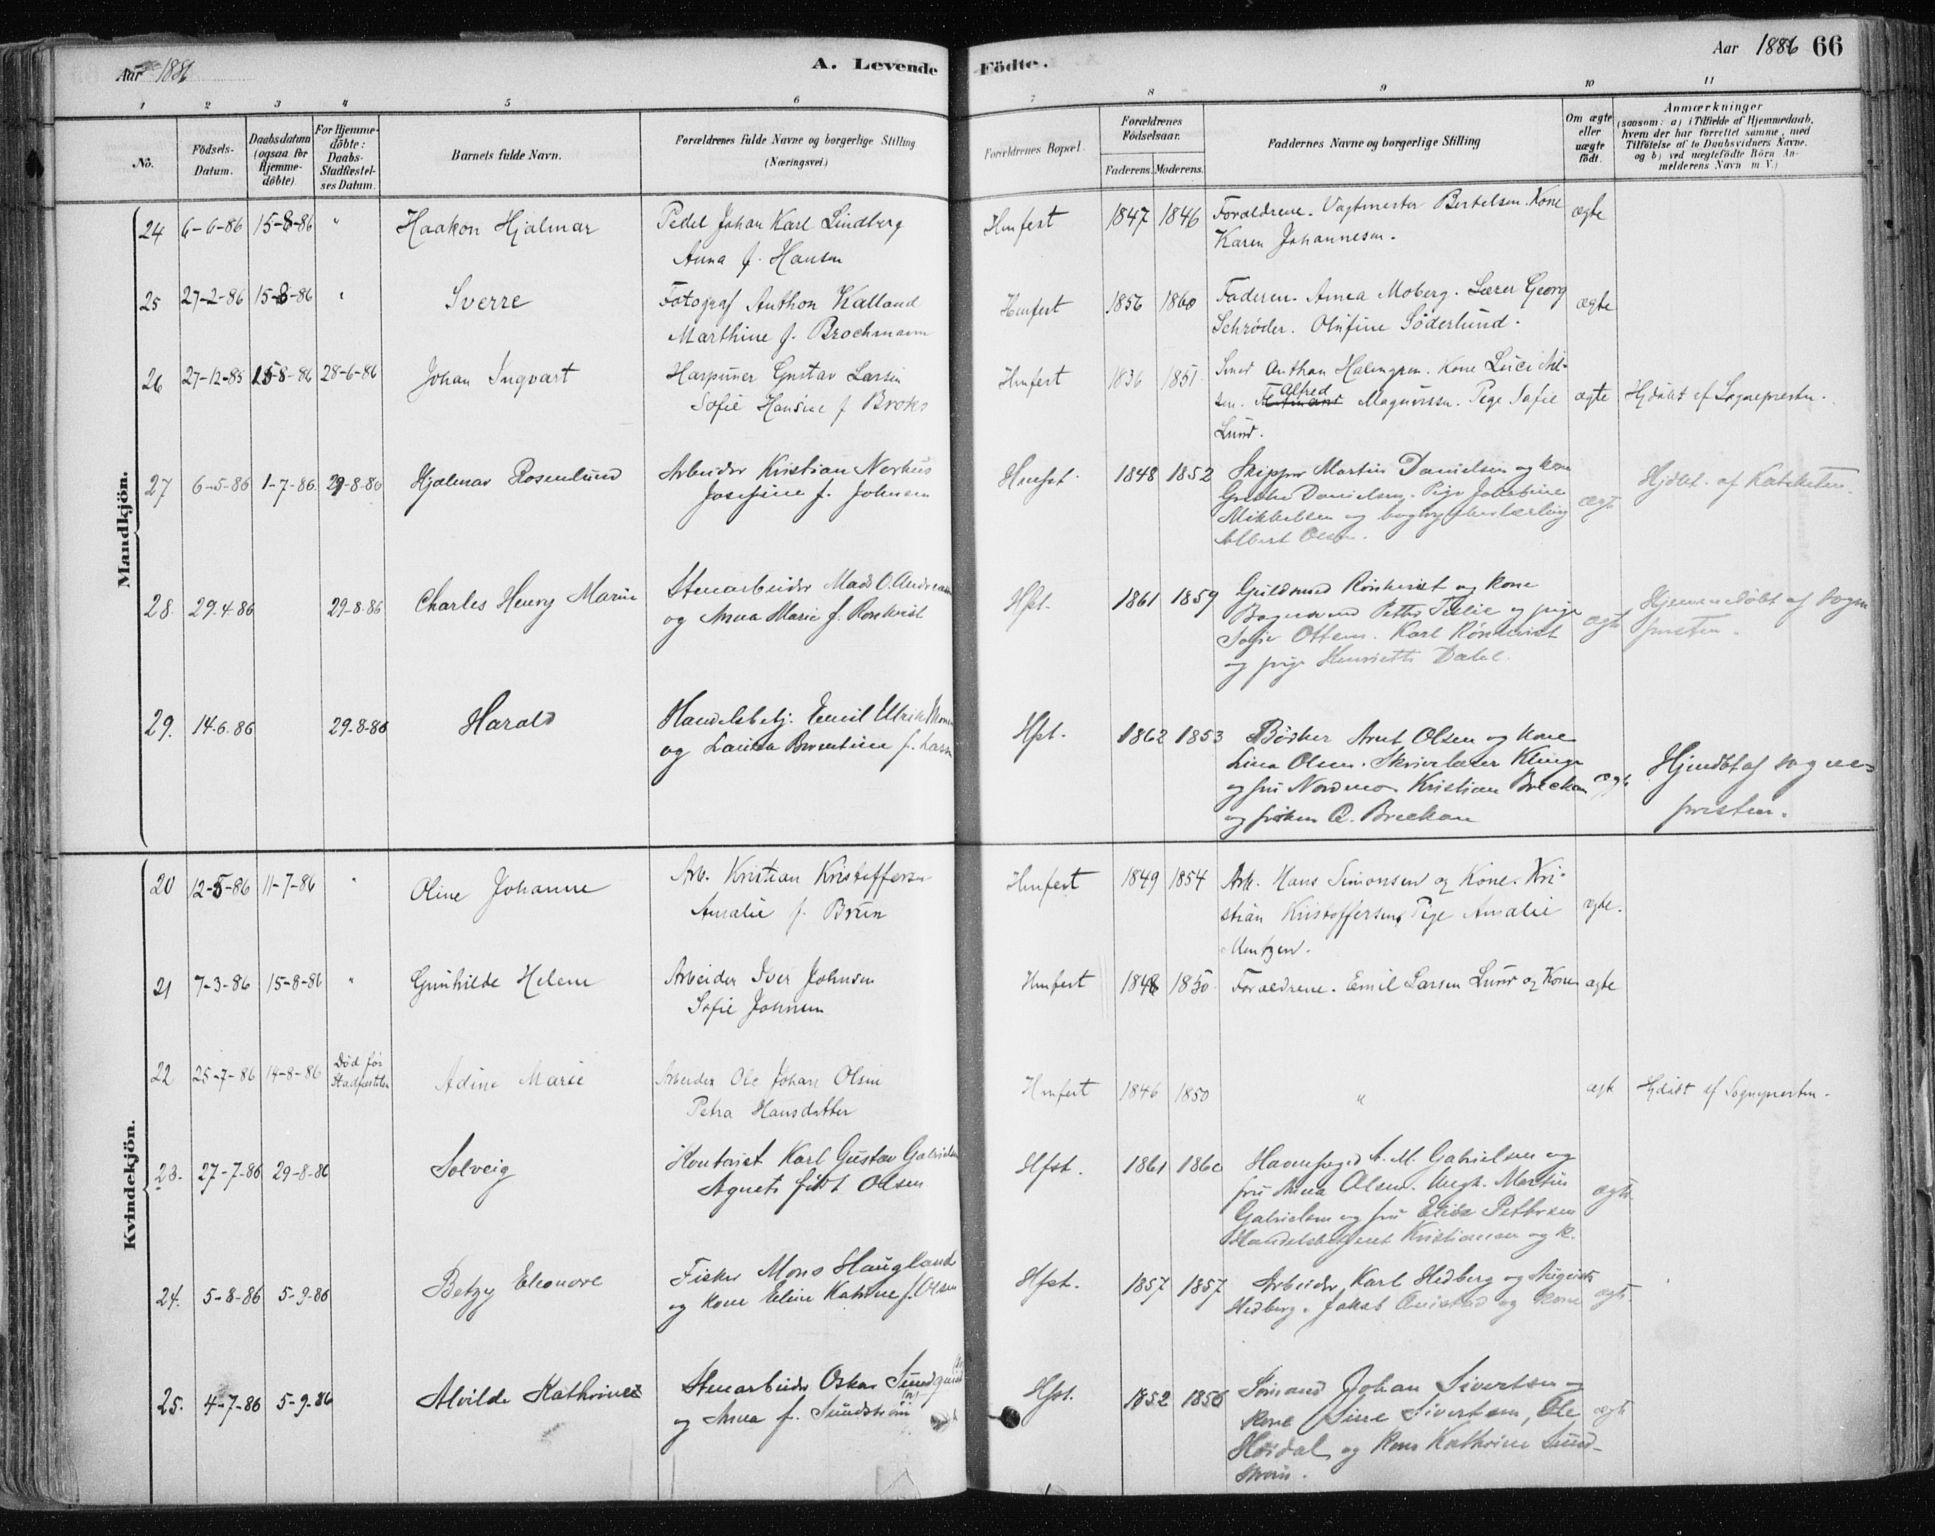 Aar 1886
A. Levende
Födte.
Aar 1886 66
1 2 3 4 5 6 7 8 9 10 11
No.
Födsels-
Datum.
Daabsdatum
(ogsaa for
Hjemme-
döbte)
For Hjemme-
döbte:
Daabs-
Stadfæstel-
ses Datum.
Barnets fulde Navn.
Forældrenes fulde Navne og borgerlige Stilling
(Næringsvei)
Forældrenes Bopæl.
Forældrenes
Födselsaar.
Faderens. Moderens.
Faddernes Navne og borgerlige Stilling
Om ægte
eller
uægte
födt.
Anmærkninger
(saasom: a) i Tilfælde af Hjemmedaab,
hvem der har forrettet samme, med
Tilföielse af to Daabsvidners Navne,
og b) ved uægtefödte Börn An-
melderens Navn m. V.)
Mandkjön.
24 6-6-86 15-8-86 " Haakon Hjalmar Pedel Johan Karl Lindberg
Anna f. Hansen
Hmfest 1847 1846 Forældrene. Vagtmester Bertelsen. Kone
Karen Johannesen.
ægte
25 27-2-86 15-8-86 " Sverre Fotograf Anthon Kalland
Marthine f. Brochmann
Hmfest 1856 1860 Faderen. Anna Moberg. Lærer Georg
Schrøder. Olufine Söderlund.
ægte
26 27-12-85 15-8-86 28-6-86 Johan Ingvart Harpuner Gustav Larsen
Sofie Hansine f Broks
Hmfest 1836 1851 Anthon Halmgren. Kone
Alfred Magnussen. Pige Sofie
Lund.
ægte Hjdöbt af Sognepresten.
27 6-5-86 1-7-86 29-8-86 Hjalmar Rosenlund Arbeider Kristian Norhus
Josefine f. Johnsen
Hmfst. 1848 1852 Skipper Martin Danielsen og kone
Danielsen. Pige
Mikkelsen og
Albert Olsen.
ægt Hjdbt. af Katekheten.
28. 29.4.86 29-8-86 Charles Henry Marin Stenarbeider Mads O. Andreasen
og Anna Marie f. Ronkvist
Hfst. 1861 1859 Guldsmed Rönkvist og kone
og pige
Ottem. Karl Rönkvist
og pige Henriette Dahl.
ægte Hjemmedöbt af sogne
presten.
29. 14-6-86 29-8-86 Harald Handelsbetj. Emil Ulrik
og Laura Berentine f. Larsen
Hfst. 1862 1853 Bödker Arnt Olsen og kone
Lina Olsen. Skrivelærer Klinge
og fru Nordmo. Kristian Breckan
og fröken C. Breckan
ægte Hjmdbt af sogne-
presten.
Kvindekjön.
20 12-5-86 11-7-86 " Oline Johanne Arb. Kristian Kristoffersen
Amalie f. Brun
Hmfest 1849 1854 Arb. Hans Simonsen og Kone. Kri-
stian Kristoffersen, Pige Amalie
Mentzen.
ægte.
21 7-3-86 15-8-86 " Gunhilde Helene Arbeider Iver Johnsen
Sofie Johnsen
Hmfest 1848 1850 Forældrene. Emil Larsen Lund og Kone ægte
22 25-7-86 14-8-86 Död før
Stadfæstelsen
Adine Marie Arbeider Ole Johan Olsen
Petra Hansdatter
Hmfest 1846 1850 " ægte Hjdöbt af Sognepresten.
23. 27-7-86 29-8-86 Solveig Kontorist Karl Gustav Gabrielsen
Agnete födt Olsen
Hfst. 1861 1860 Havnefoged A. M. Gabrielsen og
fru Anna Olsen. Ungk. Martin
Gabrielsen og fru Elise Pettersen
Handelsbetjent Kristiansen og k.
ægte
24. 5-8-86 5-9-86 Betzy Eleonore Fisker Mons Haugland
og kone Eline Katrine f. Olsen
Hfst. 1857 1857 Arbeider Karl Hedberg og Augusta
Hedberg. Jakob og kone
ægte.
25. 4-7-86 5-9-86 Alvilde Kathrine Stenarbeider Oskar Sundquist
og Anna f. Sundström
Hfst. 1852 1856 Sömand Johan Sivertsen og
kone Sine Sivertsen, Ole
Høidal og kone Kathrine Sund-
ström.
ægte